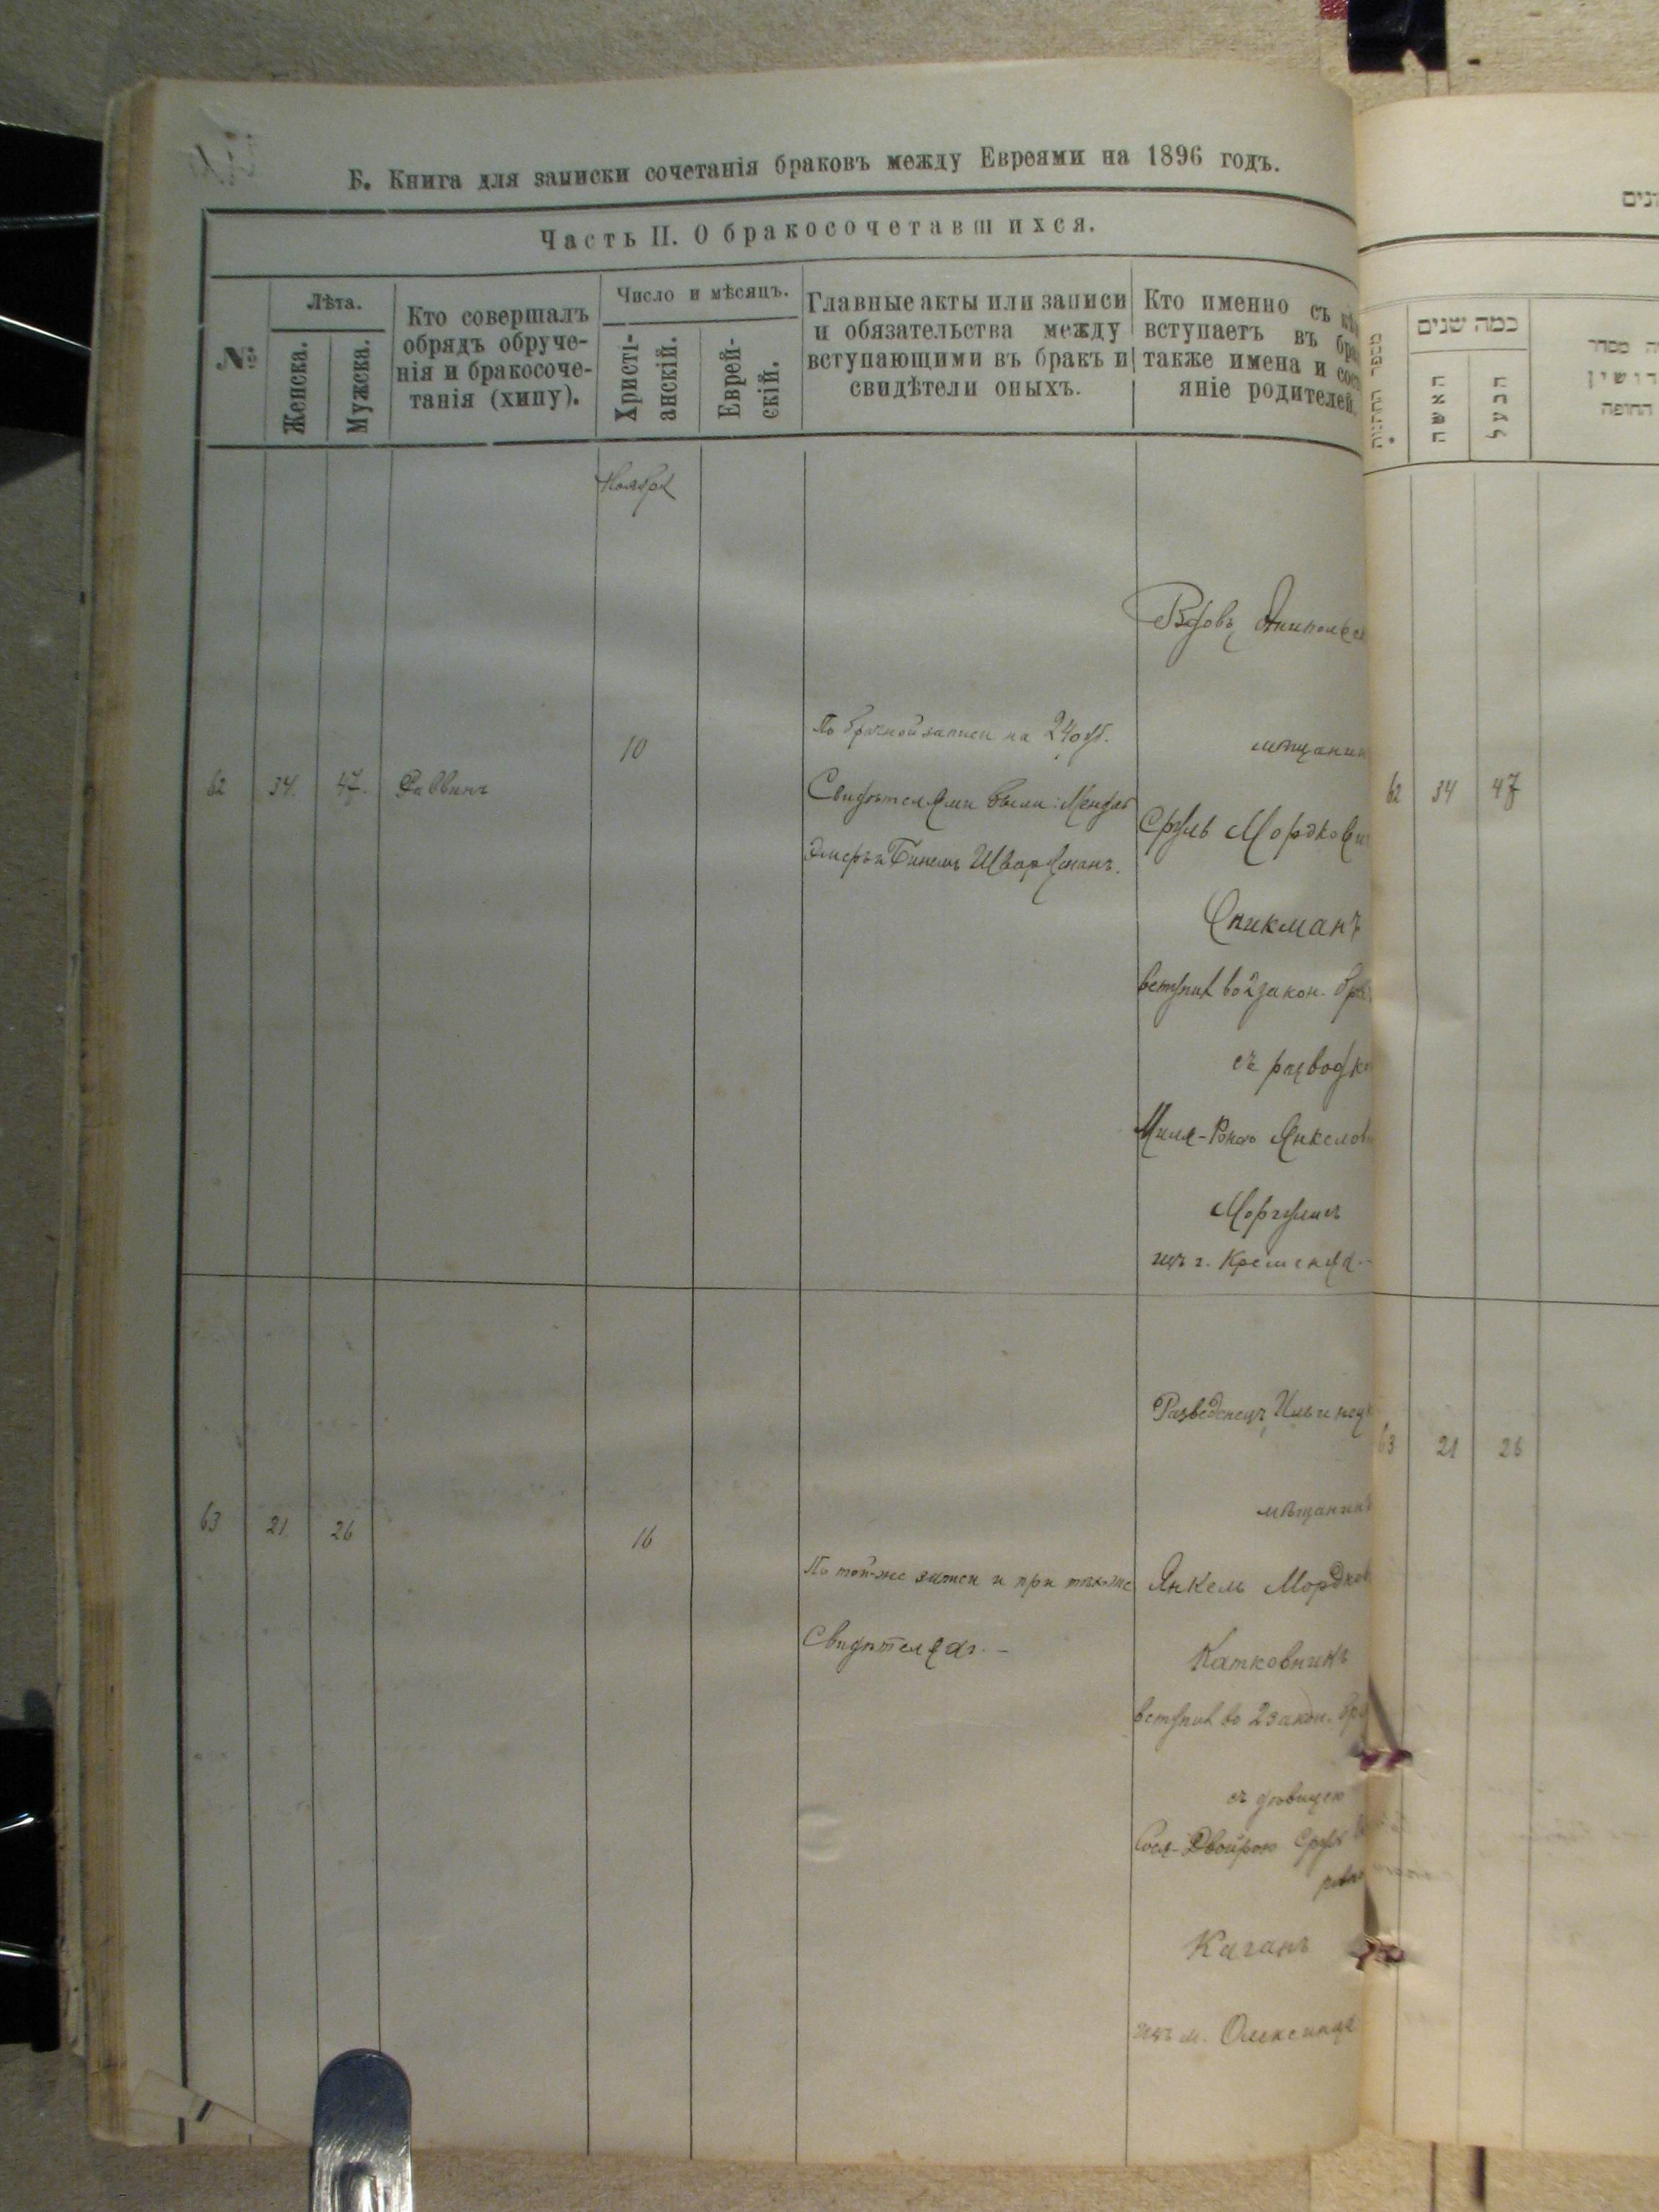 Б. Книга для записки сочетанія браковъ между Евреями на 1896 годъ.
Часть II. О бракосочетавшихся.
№
Лѣта.
Женска.
Мужска.
Кто совершалъ
обрядъ обруче-
нія и бракосоче-
танія (хипу).
Число и мѣсяцъ.
Христі-
анскій.
Еврей-
скій.
Главные акты или записи
и обязательства между
вступающими въ бракъ и
свидѣтели оныхъ.
Кто именно съ
вступаетъ въ
также имена и
яніе родителей.
Ноября
62 34. 47. Раввинъ 10
По брачной записи на 240 р.
Свидѣтелями были: Мендель
и Бинемъ Шварцманъ.
Вдовъ,
мѣщанин
Сруль Мордкови
Спикманъ
вступил во 2 закон. бра
съ разводко
Янкелов
Моргулисъ
изъ г. Кременца. -
63 21 26 16
По той-же записи и при тѣхъ-же
Свидѣтеляхъ. -
Разведенецъ,
мѣщанинъ
Янкель Мордков
Катковникъ
вступил во 2 закон. бра
съ дѣвицею
Двойрою Срул
Каганъ
изъ м. Олексинца
כמה שנים
האשה
הבעל
מסדר
החופה
62 34 47
63 21 26